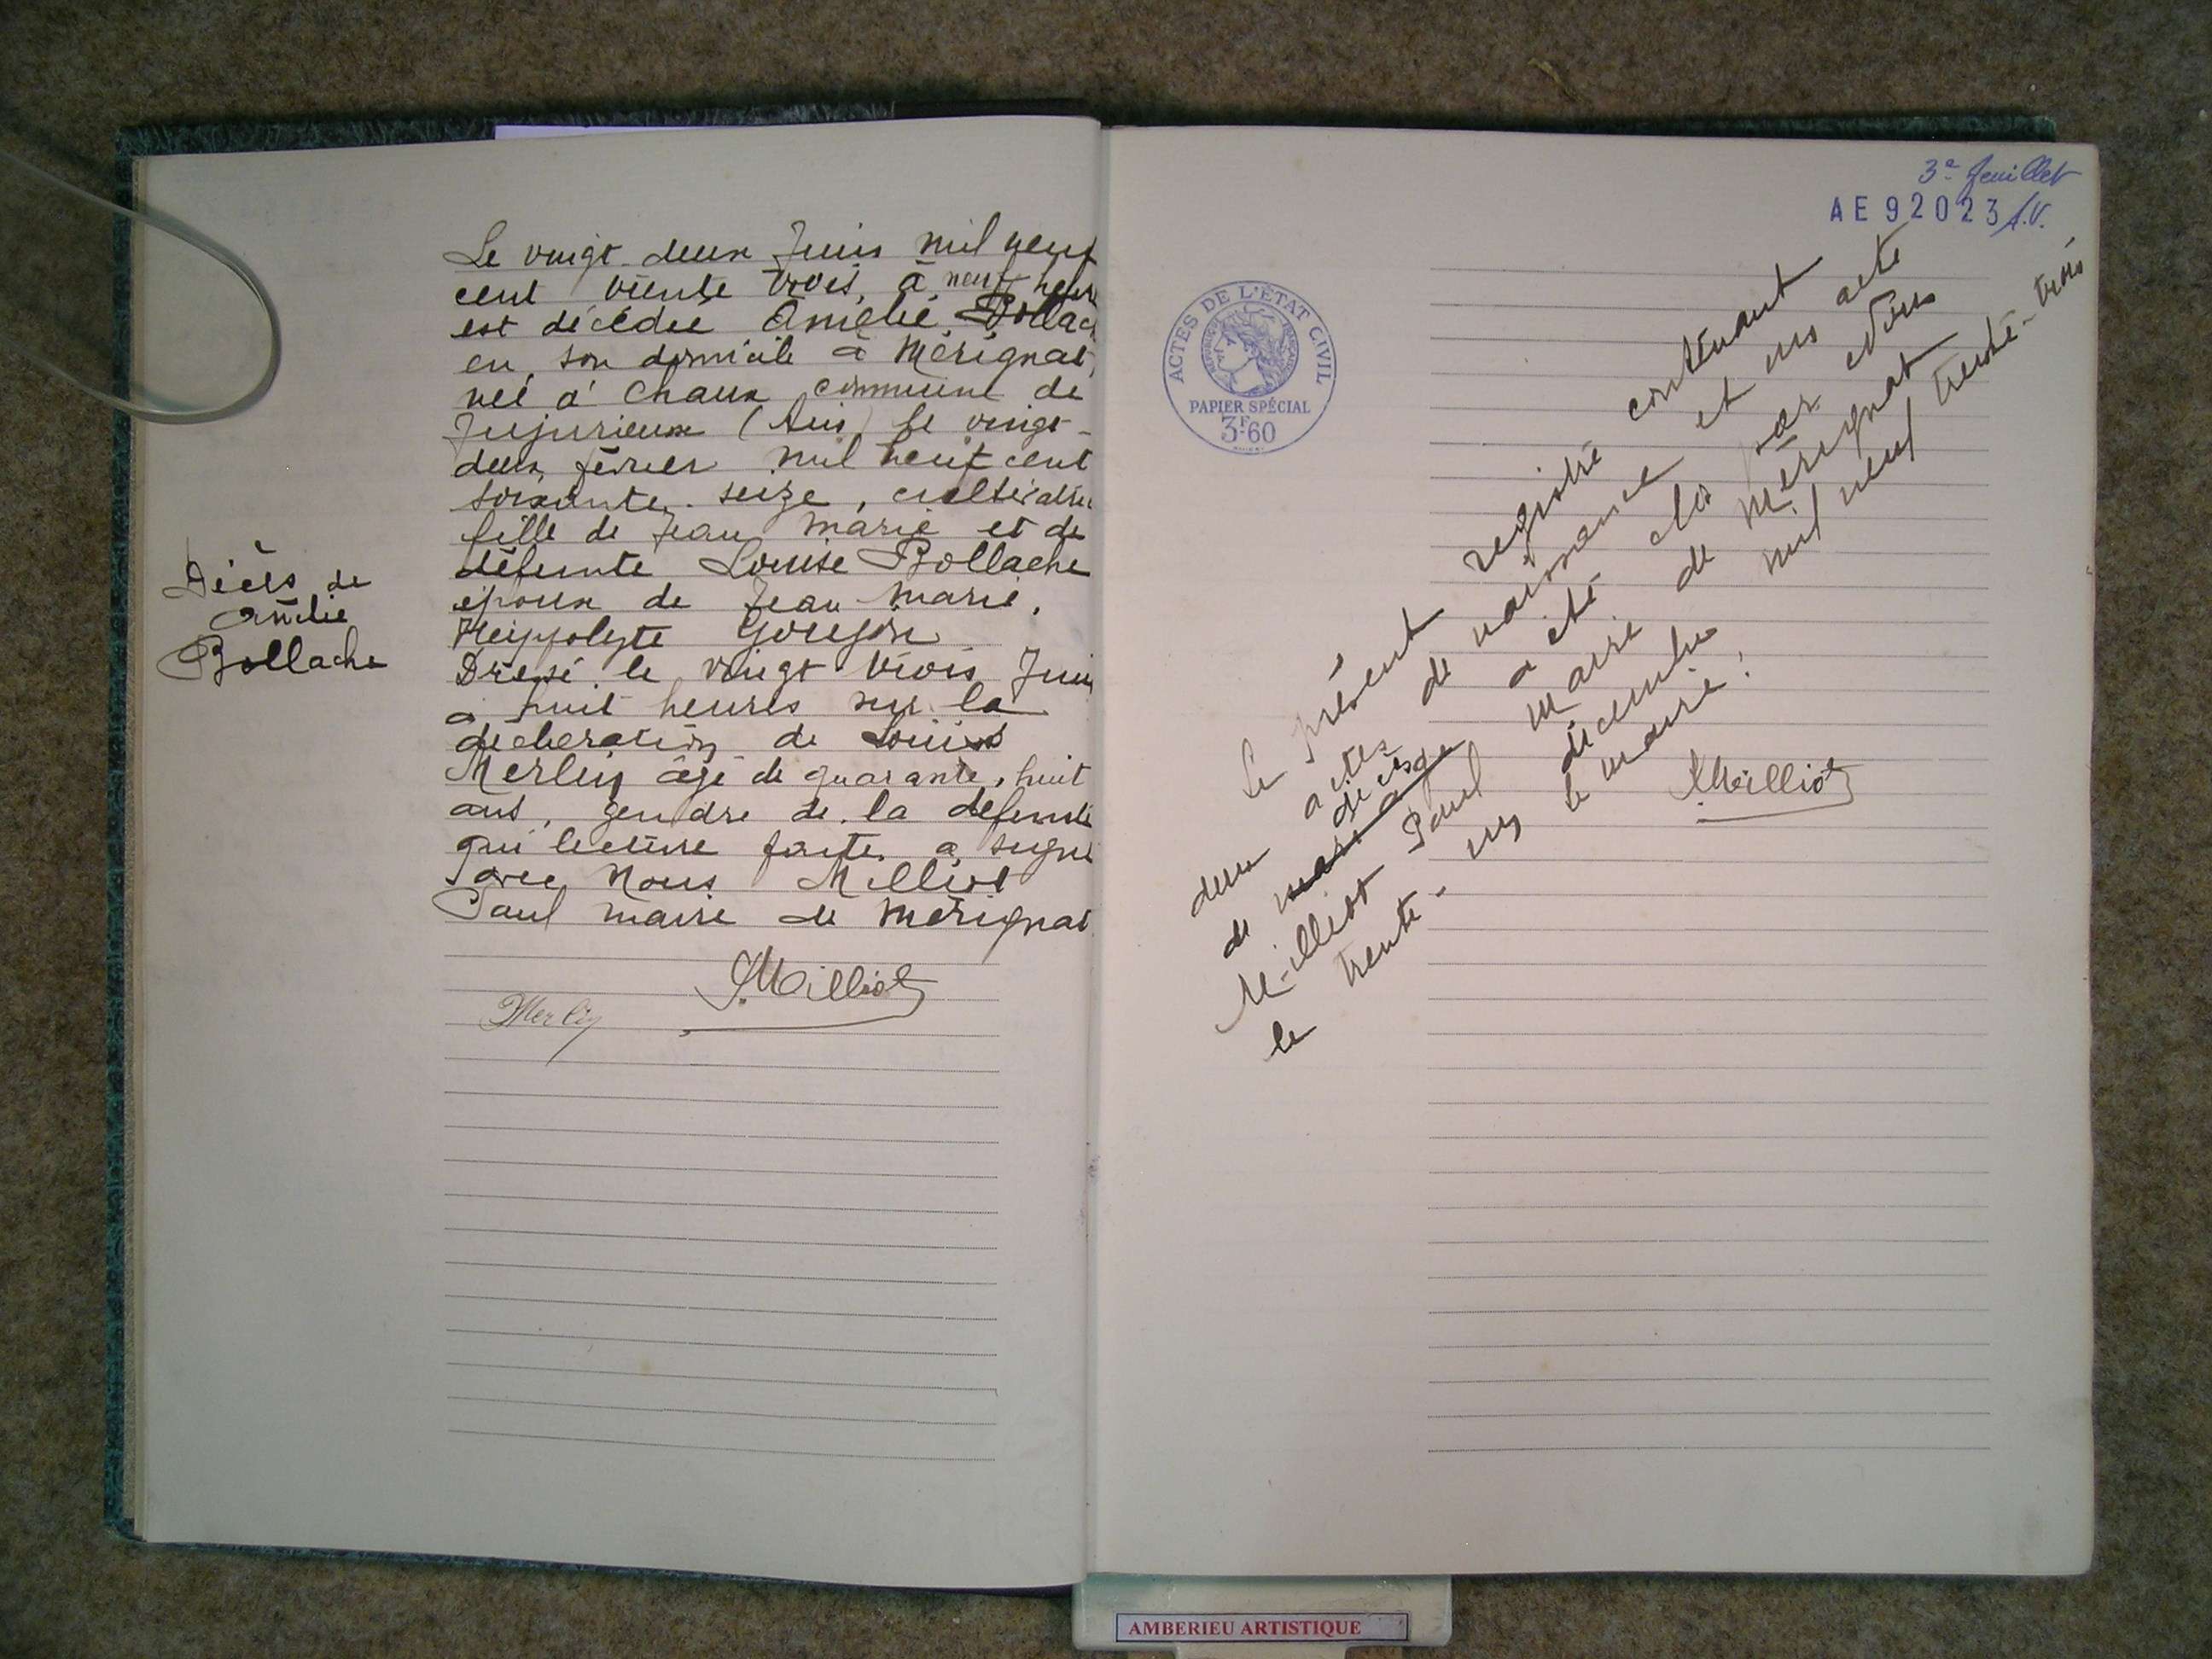 Le vingt-deux Juin mil neuf
cent trente trois, à neuf heure
est décédée Amélie Bollac
en son domicile à Mérignat,
née à Chaux commune de
Jujurieux (Ain) le vingt-
deux février mil neuf cent
soixante seize, cultivatri
fille de Jean Marie et de
défunte Louise Bollache
époux de Jean Marie,
Heippolyte Goujon
Dressé le vingt trois Juin
à huit heures sur la
décleration de Louis
Merlin âgé de quarante, huit
ans, gendre de la défunte
qui lecture faite a signé
avec Nous Milliot
Paul maire de Mérignat
Merlin
P. Milliot
Décès de
Amélie
Bollache
3e feuillet
AE 92023 A.V.
ACTES DE L'ÉTAT CIVIL
PAPIER SPÉCIAL
3F.60
Le présent registre contenant
deux actes de naissance et un acte
de décès a été clos par Nous
mariage
Milliot Paul maire de Mérignat
le trente-un décembre mil neuf trente-trois
le maire:
P. Milliot
AMBERIEU ARTISTIQUE